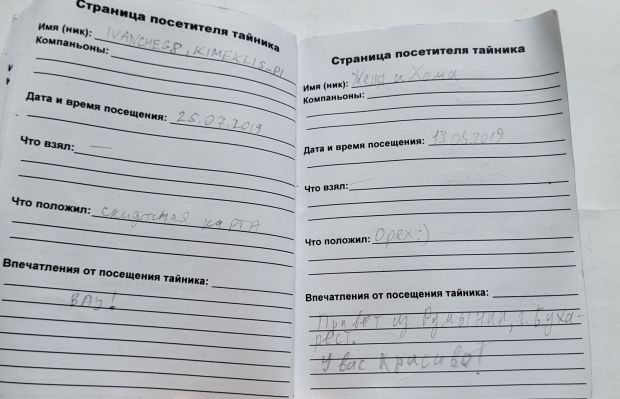 Страница посетителя тайника
Имя (ник): IVANCHEG8, KIMEKLIS_PI
Компаньоны:
Дата и время посещения: 25.07.2019
Что взял: —
Что положил: скидочная карта
Впечатления от посещения тайника:
ВАУ!
Страница посетителя тайника
Имя (ник): Женя и Хома
Компаньоны:
Дата и время посещения: 13.08.2019
Что взял: —
Что положил: Орех :)
Впечатления от посещения тайника:
Привет из Румынии, г. Буха-
рест.
У вас красиво!